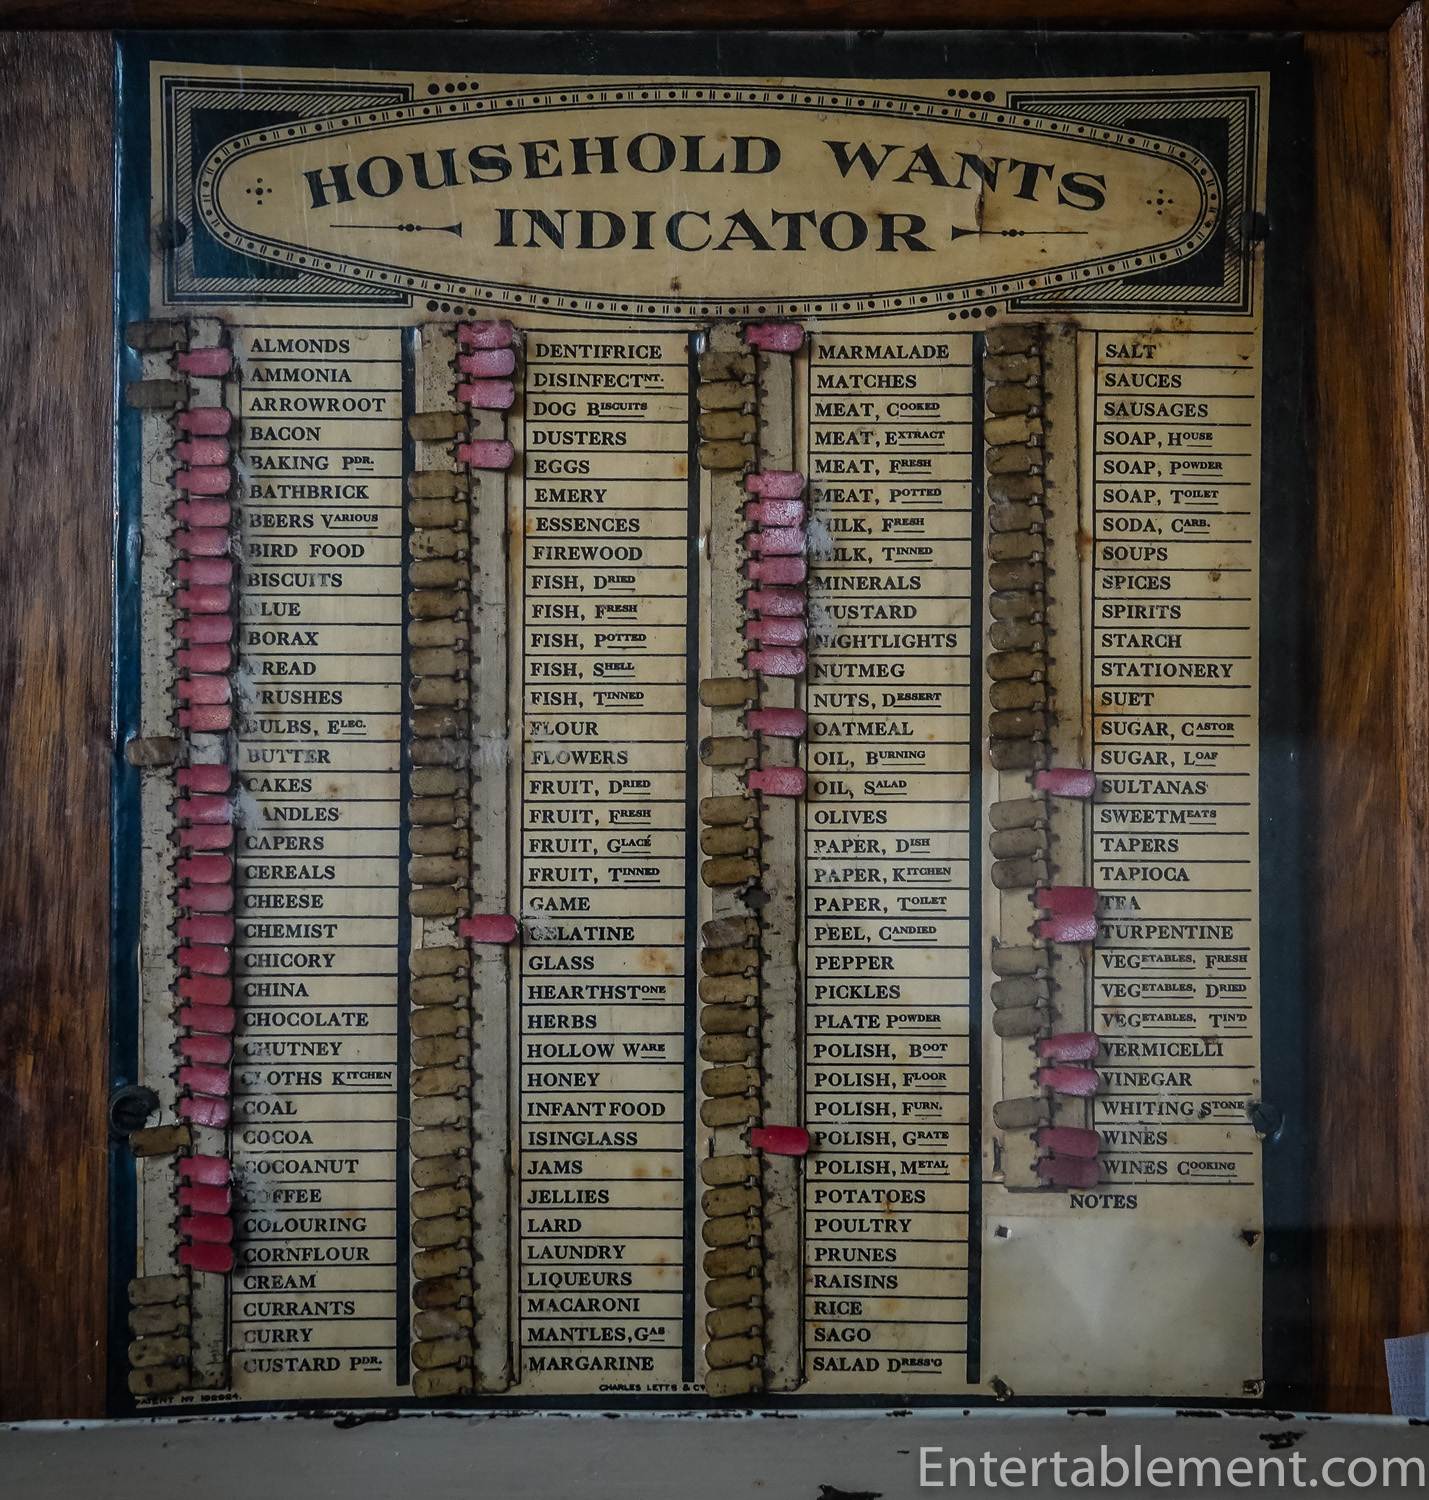 HOUSEHOLD WANTS
INDICATOR
ALMONDS
AMMONIA
ARROWROOT
BACON
BAKING PDR.
BATHBRICK
BEERS VARIOUS
BIRD FOOD
BISCUITS
BLUE
BORAX
BREAD
BRUSHES
BULBS, ELEC.
BUTTER
CAKES
CANDLES
CAPERS
CEREALS
CHEESE
CHEMIST
CHICORY
CHINA
CHOCOLATE
CHUTNEY
CLOTHS KITCHEN
COAL
COCOA
COCOANUT
COFFEE
COLOURING
CORNFLOUR
CREAM
CURRANTS
CURRY
CUSTARD PDR.
DENTIFRICE
DISINFECTNT.
DOG BISCUITS
DUSTERS
EGGS
EMERY
ESSENCES
FIREWOOD
FISH, DRIED
FISH, FRESH
FISH, POTTED
FISH, SHELL
FISH, TINNED
FLOUR
FLOWERS
FRUIT, DRIED
FRUIT, FRESH
FRUIT, GLACÉ
FRUIT, TINNED
GAME
GELATINE
GLASS
HEARTHSTONE
HERBS
HOLLOW WARE
HONEY
INFANT FOOD
ISINGLASS
JAMS
JELLIES
LARD
LAUNDRY
LIQUEURS
MACARONI
MANTLES, GAS
MARGARINE
MARMALADE
MATCHES
MEAT, COOKED
MEAT, EXTRACT
MEAT, FRESH
MEAT, POTTED
MILK, FRESH
MILK, TINNED
MINERALS
MUSTARD
NIGHTLIGHTS
NUTMEG
NUTS, DESSERT
OATMEAL
OIL, BURNING
OIL, SALAD
OLIVES
PAPER, DISH
PAPER, KITCHEN
PAPER, TOILET
PEEL, CANDIED
PEPPER
PICKLES
PLATE POWDER
POLISH, BOOT
POLISH, FLOOR
POLISH, FURN.
POLISH, GRATE
POLISH, METAL
POTATOES
POULTRY
PRUNES
RAISINS
RICE
SAGO
SALAD DRESS'G
SALT
SAUCES
SAUSAGES
SOAP, HOUSE
SOAP, POWDER
SOAP, TOILET
SODA, CARB.
SOUPS
SPICES
SPIRITS
STARCH
STATIONERY
SUET
SUGAR, CASTOR
SUGAR, LOAF
SULTANAS
SWEETMEATS
TAPERS
TAPIOCA
TEA
TURPENTINE
VEGETABLES, FRESH
VEGETABLES, DRIED
VEGETABLES, TIN'D
VERMICELLI
VINEGAR
WHITING STONE
WINES
WINES COOKING
NOTES
PATENT No
CHARLES LETTS & Co
Entertablement.com